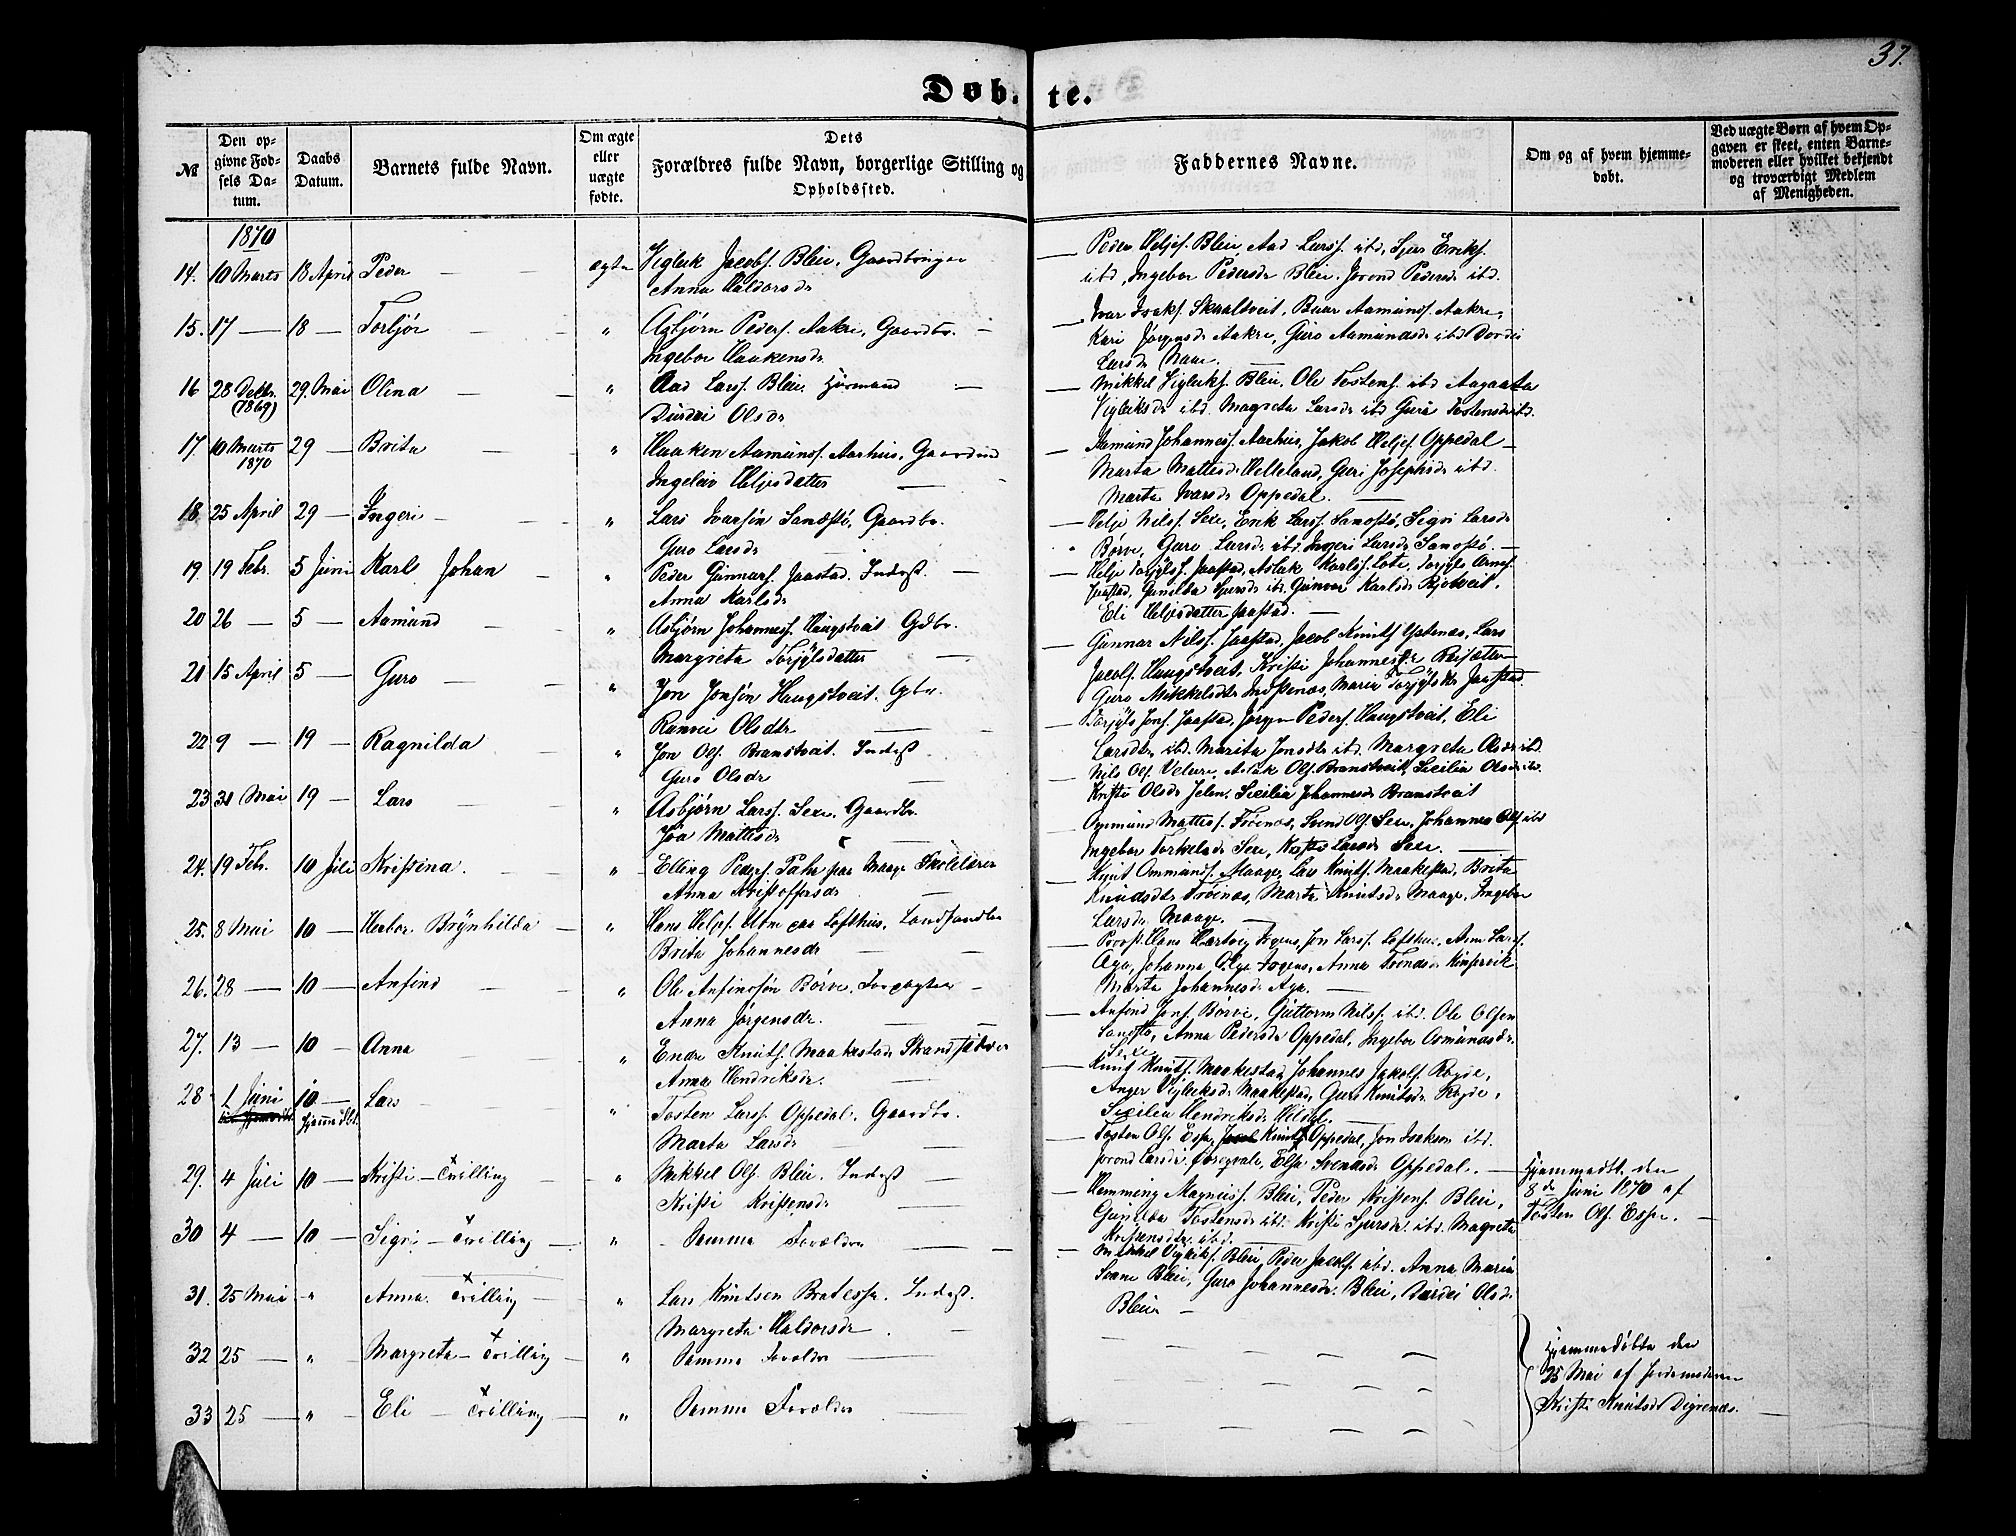 37.
Døbte.
№
Den op-
givne Fød-
sels Da-
tum.
Daabs
Datum.
Barnets fulde Navn.
Om ægte
eller
uægte
fødte.
Dets
Forældres fulde Navn, borgerlige Stilling og
Opholdssted.
Faddernes Navne.
Om og af hvem hjemme-
døbt.
Ved uægte Børn af hvem Op-
gaven er skeet, enten Barne-
moderen eller hvilket bekjendt
og troværdigt Medlem
af Menigheden.
1870
14. 10 Marts 18 April Peder — ægte Vigleik Jacobs. Bleie, Gaardbruger
Anna Haldorsdr
— Peder Heljes. Bleie, Aad Larss. ibd, Sjur Eriks.
ibd, Ingebor Pedersdr Bleie. Jorond Pedersdr ibd.
15. 17 — 18 — Torbjør — " Asbjørn Peders. Aakre, Gaardbr. —
Ingebor Haakensdr
— Ivar Isaks. Skraaltveit, Aamunds. Aakre,
Kari Jørgensdr Aakre, Guro Aamundsdr ibd Dordei
Larsdr
16 28 Decbr. (1869) 29. Mai Olina — " Aad Larss. Bleie. Huusmand —
Durdei Olsdr
— Mikkel Vigleiks. Bleie, Ole Tostens. ibd Aagaata
Vigleiksdr ibd. Magreta Larsdr ibd Guro Tostensdr ibd.
17. 10 Marts 1870 29 — Brita — " Haaken Aamunds. Aarhus, Gaardmd
Ingeleiv Heljesdatter —
— Aamund Johanness. Aarhus, Jakob Heljes. Oppedal —
Marta Mattisdr Helleland, Guri Josephsdr ibd.
Marta Ivarsdr Oppedal. —
18. 25 April 29 — Ingeri — " Lars Ivarsøn Sandstø, Gaardbr.
Guro Larsdr —
— Helje Nilss. Sexe, Erik Larss. Sandstø, Sigri Larsdr
Børve, Guro Larsdr ibd. Ingeri Larsdr Sandstø. —
19. 19 Febr. 5 Juni Karl Johan — " Peder Gunnars. Jaastad. Inderst. —
Anna Karlsdr
— Helje Torjyls. Jaastad, Aslak Karls. Lote, Torjyls Arnes.
Jaastad, Gunilda Sjursdr ibd, Gunvor Karlsdr
Eli Heljesdatter Jaastad. —
20 26 — 5 — Aamund — " Asbjørn Johanness. Haugstveit Gdbr.
Margreta Torjylsdatter —
— Gunnar Nilss. Jaastad, Jacob Knuts. Ystenæs, Lars
Jacobs. Haugstveit, Kristi Johannesdr
Guro Mikkelsdr Maria Torjylsdr Jaastad.
21 15 April 5 — Guro — " Jon Jonsøn Haugstveit. Gbr.
Ranvei Olsdtr —
— Torjyls Jons. Jaastad, Jørgen Peders. Haugstveit, Eli
Larsdtr ibd. Marita Jonsdtr ibd Margreta Olsdr ibd.
22 9 — 19 — Ragnilda — " Jon Ols. Branstveit. Inderst.
Guro Olsdr —
— Nils Ols. Velure, Aslak Ols. Branstveit, Sicilia Olsdr ibd.
Kristi Olsdr Sicilia Johannesdr Branstveit
23 31 Mai 19 — Lars — " Asbjørn Larss. Sexe, Gaardbr.
Mattisdr —
— Ommund Mattess. Trøenæs, Svend Ols. Sexe, Johannes Ols. ibd
Ingebor Torkelsdr Sexe, Kristi Larsdr Sexe. —
24. 19 Febr. 10 Juli Kristina. — " Elling Peders. paa Maage Skolelærer
Anna Kristoffersdr —
— Knut Ommunds. Maage, Lars Knuts. Maakestad, Brita
Knudsdtr Trøenæs, Marta Knutsdr Maage, Ingebor
Larsdr Maage. —
25. 8 Mai 10 — Herbor Brynhilda — " Hans Heljes. Utne paa Lofthus, Landhandler
Brita Johannesdr —
— Provst Hans Hartvig Jon Larss. Lofthus, Arne Larss.
Aga, Johanna Olga Anna Kinservik
Marta Johannesdr Aga. —
26. 28 — 10 — Anfind — " Ole Anfinssøn Børve. Forpagter —
Anna Jørgensdr. —
— Anfind Jons. Børve, Guttorm Nilss. ibd. Ole Olsen
Sandstø, Anna Pedersdr Oppedal, Ingebor Osmundsdr.
Sexe
27. 13 — 10 — Anna — " Endre Knuts. Maakestad Strandsidder
Anna Hendriksdr. —
— Knut Knuts. Maakestad, Johannes Jakobs. Røgde,
Anger Vigleiksdr Maakestad, Guro Knutsdr Røgde,
Sicilia Hendriksdr Hildal. —
28 1 Juni 10 — hjemmedbt. Lars — " Tosten Larss. Oppedal, Gaardbr.
Marta Larsdr —
— Tosten Ols. Espe, Knuts. Oppedal, Jon Isaksen ibd.
Jorond Larsdr Elsa Svendsdr Oppedal. —
Hjemmedbt. den
8de Juni 1870 af
Tosten Ols. Espe. —
29. 4 Juli 10 — Kristi — Tvilling — " Mikkel Ols. Bleie. Inderst —
Kristi Kristensdr —
— Hemming Magness. Bleie, Peder Kristens. Bleie,
Gunilda Tostensdr ibd. Kristi Sjursdr. ibd. Magreta
Kristensdtr. ibd. —
30 4 — 10 — Sigri — Tvilling — " Samme Forældre —
— Mikkel Vigleiks. Bleie Peder Jacobs. ibd. Anna Maria
Svane Bleie, Guro Johannesdr. Bleie, Durdei Olsdr
Bleie —
31. 25 Mai " Anna. Trilling — " Lars Knutsen Bratespe. Inderst.
Margreta Haldorsdr. —
32 25 — " Margreta — Trilling — " Samme Forældre
33 25 — " Eli — Trilling — " Samme Forældre
Hjemmedøbte den
25 Mai af Jordemoderen
Kristi Knutsdr Digrenæs. —